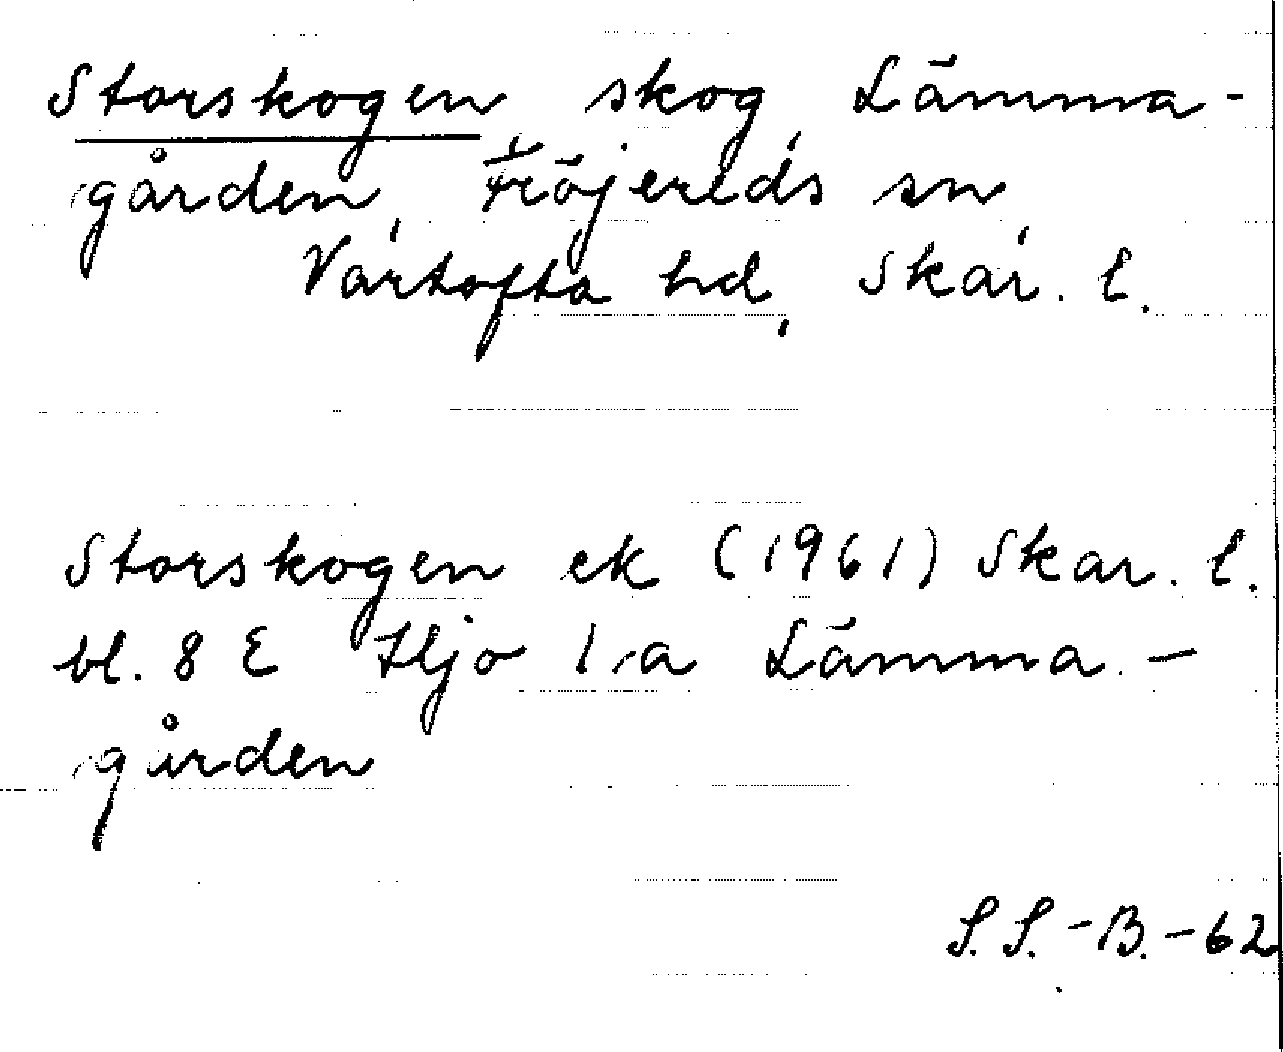 Storskogen skog Lämma-
gården, Fröjereds sn,
Vartofta hd, Skar. l.
Storskogen ek (1961) Skar. l.
bl. 8 E Hjo 1.a Lämma-
gården
S.S.-B.-62